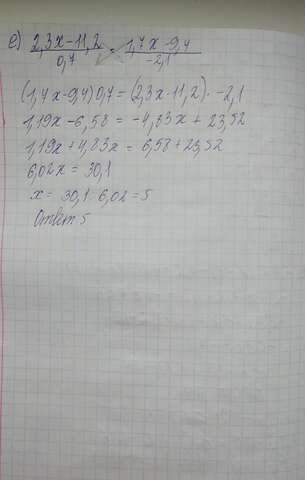 е) 2,3x-11,2 / 0,7 = 1,7x-9,4 / -2,1
(1,7x-9,4)0,7=(2,3x-11,2)·-2,1
1,19x-6,58=-4,83x+23,52
1,19x+4,83x=6,58+23,52
6,02x=30,1
x=30,1:6,02=5
Ответ 5